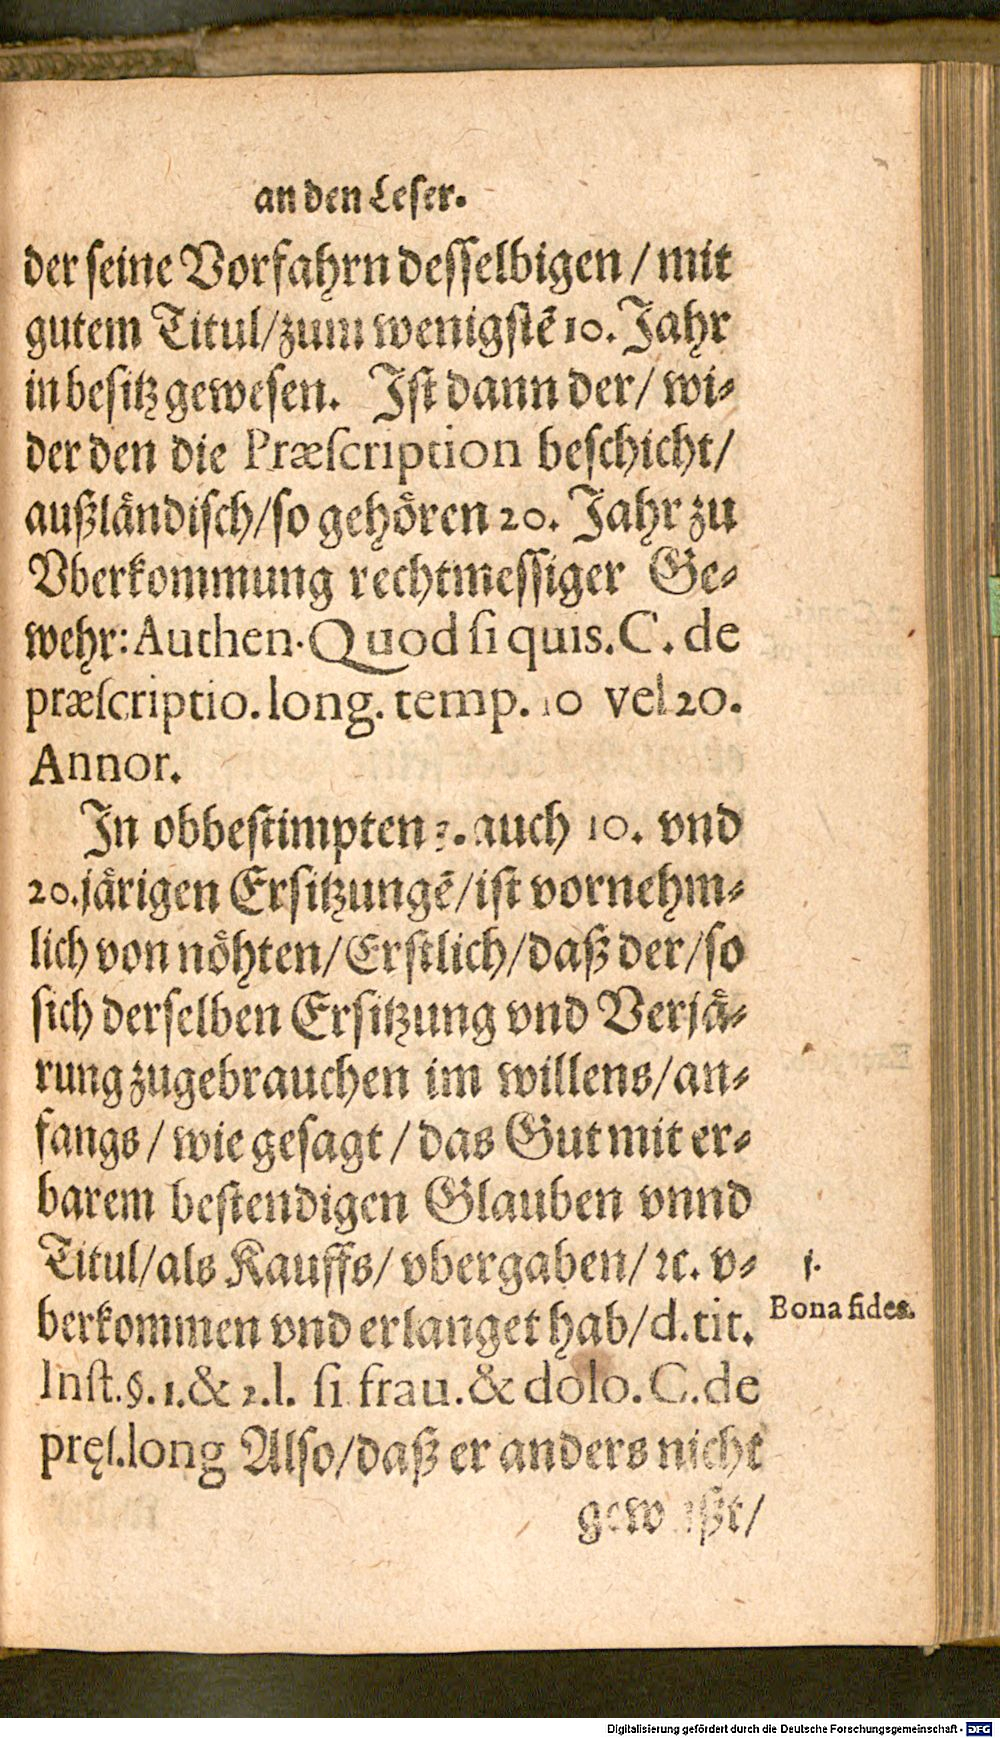 an den Leser.
der seine Vorfahrn desselbigen / mit
gutem Titul/zum wenigstē 10. Jahr
in besitz gewesen. Ist dann der/ wi-
der den die Præscription beschicht/
außländisch/so gehören 20. Jahr zu
Vberkommung rechtmessiger Ge-
wehr: Authen. Quod si quis. C. de
præscriptio. long. temp. 10 vel 20.
Annor.
In obbestimpten 3. auch 10. vnd
20. järigen Ersitzungē/ist vornehm-
lich von nöhten/Erstlich/daß der/so
sich derselben Ersitzung vnd Verjä-
rung zugebrauchen im willens/an-
fangs / wie gesagt / das Gut mit er-
barem bestendigen Glauben vnnd
Titul/als Kauffs/ vbergaben/ ꝛc. v-
berkommen vnd erlanget hab/d. tit.
Inst. §. 1. & 2. l. si frau. & dolo. C. de
pręs. long Also/daß er anders nicht
1.
Bona fides.